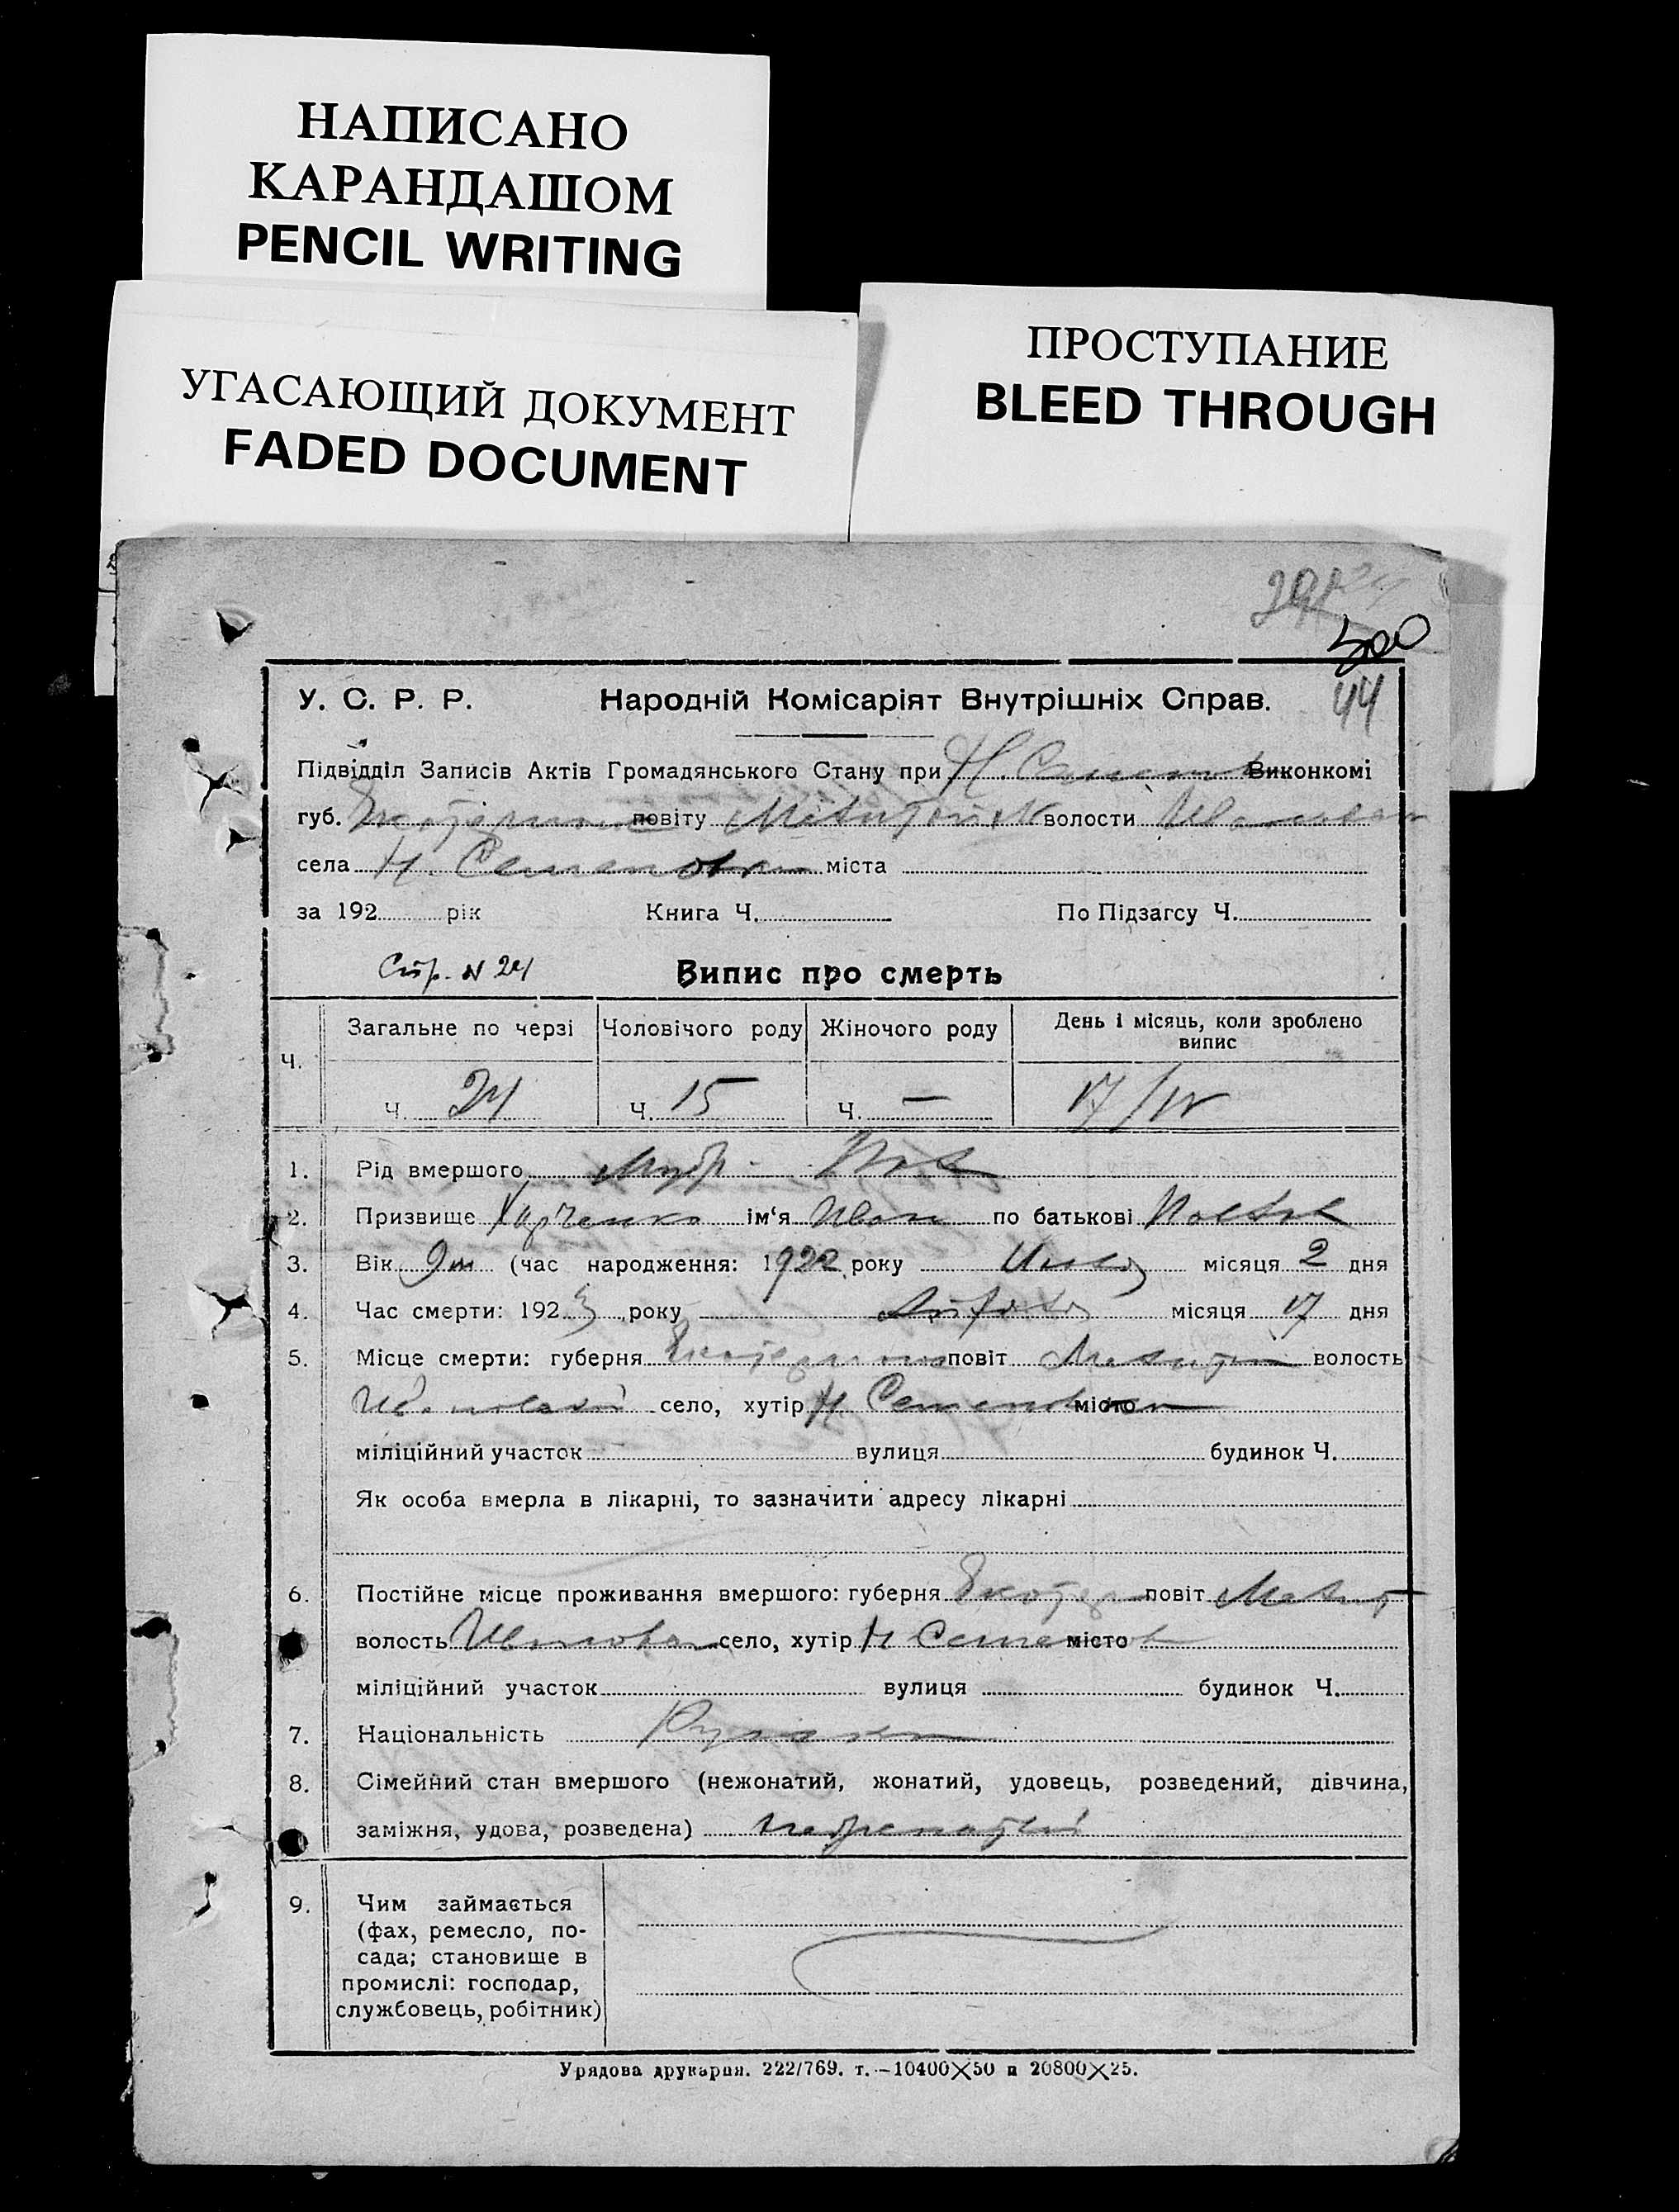 НАПИСАНО
КАРАНДАШОМ
PENCIL WRITING
УГАСАЮЩИЙ ДОКУМЕНТ
FADED DOCUMENT
ПРОСТУПАНИЕ
BLEED THROUGH
500
44
У. С. Р. Р. Народній Комісаріят Внутрішніх Справ.
Підвідділ Записів Актів Громадянського Стану при Н. Виконкомі
губ. повіту волости
села Н. Семеновка міста
за 192 рік Книга Ч. По Підзагсу Ч.
Стр. N 24 Випис про смерть
Загальне по черзі Чоловічого роду Жіночого роду День і місяць, коли зроблено
випис
Ч.
Ч. 24 Ч. 15 Ч. — 17/IV
1. Рід вмершого
2. Призвище Харченко ім'я Иван по батькові
3. Вік 9 м (час народження: 1922 року місяця 2 дня
4. Час смерти: 1923 року місяця 17 дня
5. Місце смерти: губерня повіт волость
село, хутір Н. Семеновка місто
міліційний участок вулиця будинок Ч.
Як особа вмерла в лікарні, то зазначити адресу лікарні
6. Постійне місце проживання вмершого: губерня Екатер повіт Мелит
волость село, хутір Н Семенов місто
міліційний участок вулиця будинок Ч.
7. Національність
8. Сімейний стан вмершого (нежонатий, жонатий, удовець, розведений, дівчина,
заміжня, удова, розведена)
9. Чим займається
(фах, ремесло, по-
сада; становище в
промислі: господар,
службовець, робітник)
Урядова друкарня. 222/769. т.—10400×50 и 20800×25.